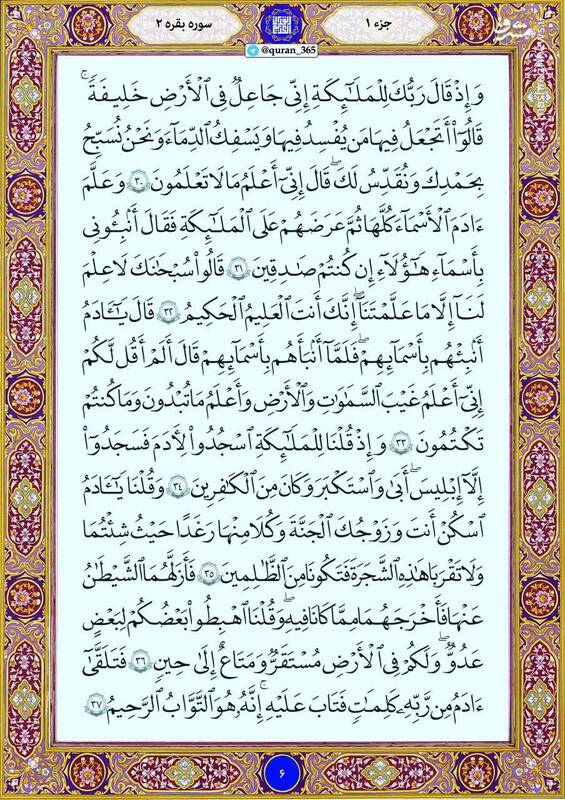 سوره بقره ۲
جزء ۱
@quran_365
وَإِذْ قَالَ رَبُّكَ لِلْمَلَٰٓئِكَةِ إِنِّي جَاعِلٌ فِي ٱلْأَرْضِ خَلِيفَةً ۖ
قَالُوٓا۟ أَتَجْعَلُ فِيهَا مَن يُفْسِدُ فِيهَا وَيَسْفِكُ ٱلدِّمَآءَ وَنَحْنُ نُسَبِّحُ
بِحَمْدِكَ وَنُقَدِّسُ لَكَ ۖ قَالَ إِنِّيٓ أَعْلَمُ مَا لَا تَعْلَمُونَ ۳۰ وَعَلَّمَ
ءَادَمَ ٱلْأَسْمَآءَ كُلَّهَا ثُمَّ عَرَضَهُمْ عَلَى ٱلْمَلَٰٓئِكَةِ فَقَالَ أَنۢبِـُٔونِي
بِأَسْمَآءِ هَٰٓؤُلَآءِ إِن كُنتُمْ صَٰدِقِينَ ۳۱ قَالُوا۟ سُبْحَٰنَكَ لَا عِلْمَ
لَنَآ إِلَّا مَا عَلَّمْتَنَآ ۖ إِنَّكَ أَنتَ ٱلْعَلِيمُ ٱلْحَكِيمُ ۳۲ قَالَ يَٰٓـَٔادَمُ
أَنۢبِئْهُم بِأَسْمَآئِهِمْ ۖ فَلَمَّآ أَنۢبَأَهُم بِأَسْمَآئِهِمْ قَالَ أَلَمْ أَقُل لَّكُمْ
إِنِّيٓ أَعْلَمُ غَيْبَ ٱلسَّمَٰوَٰتِ وَٱلْأَرْضِ وَأَعْلَمُ مَا تُبْدُونَ وَمَا كُنتُمْ
تَكْتُمُونَ ۳۳ وَإِذْ قُلْنَا لِلْمَلَٰٓئِكَةِ ٱسْجُدُوا۟ لِـَٔادَمَ فَسَجَدُوٓا۟
إِلَّآ إِبْلِيسَ أَبَىٰ وَٱسْتَكْبَرَ وَكَانَ مِنَ ٱلْكَٰفِرِينَ ۳۴ وَقُلْنَا يَٰٓـَٔادَمُ
ٱسْكُنْ أَنتَ وَزَوْجُكَ ٱلْجَنَّةَ وَكُلَا مِنْهَا رَغَدًا حَيْثُ شِئْتُمَا
وَلَا تَقْرَبَا هَٰذِهِ ٱلشَّجَرَةَ فَتَكُونَا مِنَ ٱلظَّٰلِمِينَ ۳۵ فَأَزَلَّهُمَا ٱلشَّيْطَٰنُ
عَنْهَا فَأَخْرَجَهُمَا مِمَّا كَانَا فِيهِ ۖ وَقُلْنَا ٱهْبِطُوا۟ بَعْضُكُمْ لِبَعْضٍ
عَدُوٌّ ۖ وَلَكُمْ فِي ٱلْأَرْضِ مُسْتَقَرٌّ وَمَتَٰعٌ إِلَىٰ حِينٍ ۳۶ فَتَلَقَّىٰٓ
ءَادَمُ مِن رَّبِّهِۦ كَلِمَٰتٍ فَتَابَ عَلَيْهِ ۚ إِنَّهُۥ هُوَ ٱلتَّوَّابُ ٱلرَّحِيمُ ۳۷
۶